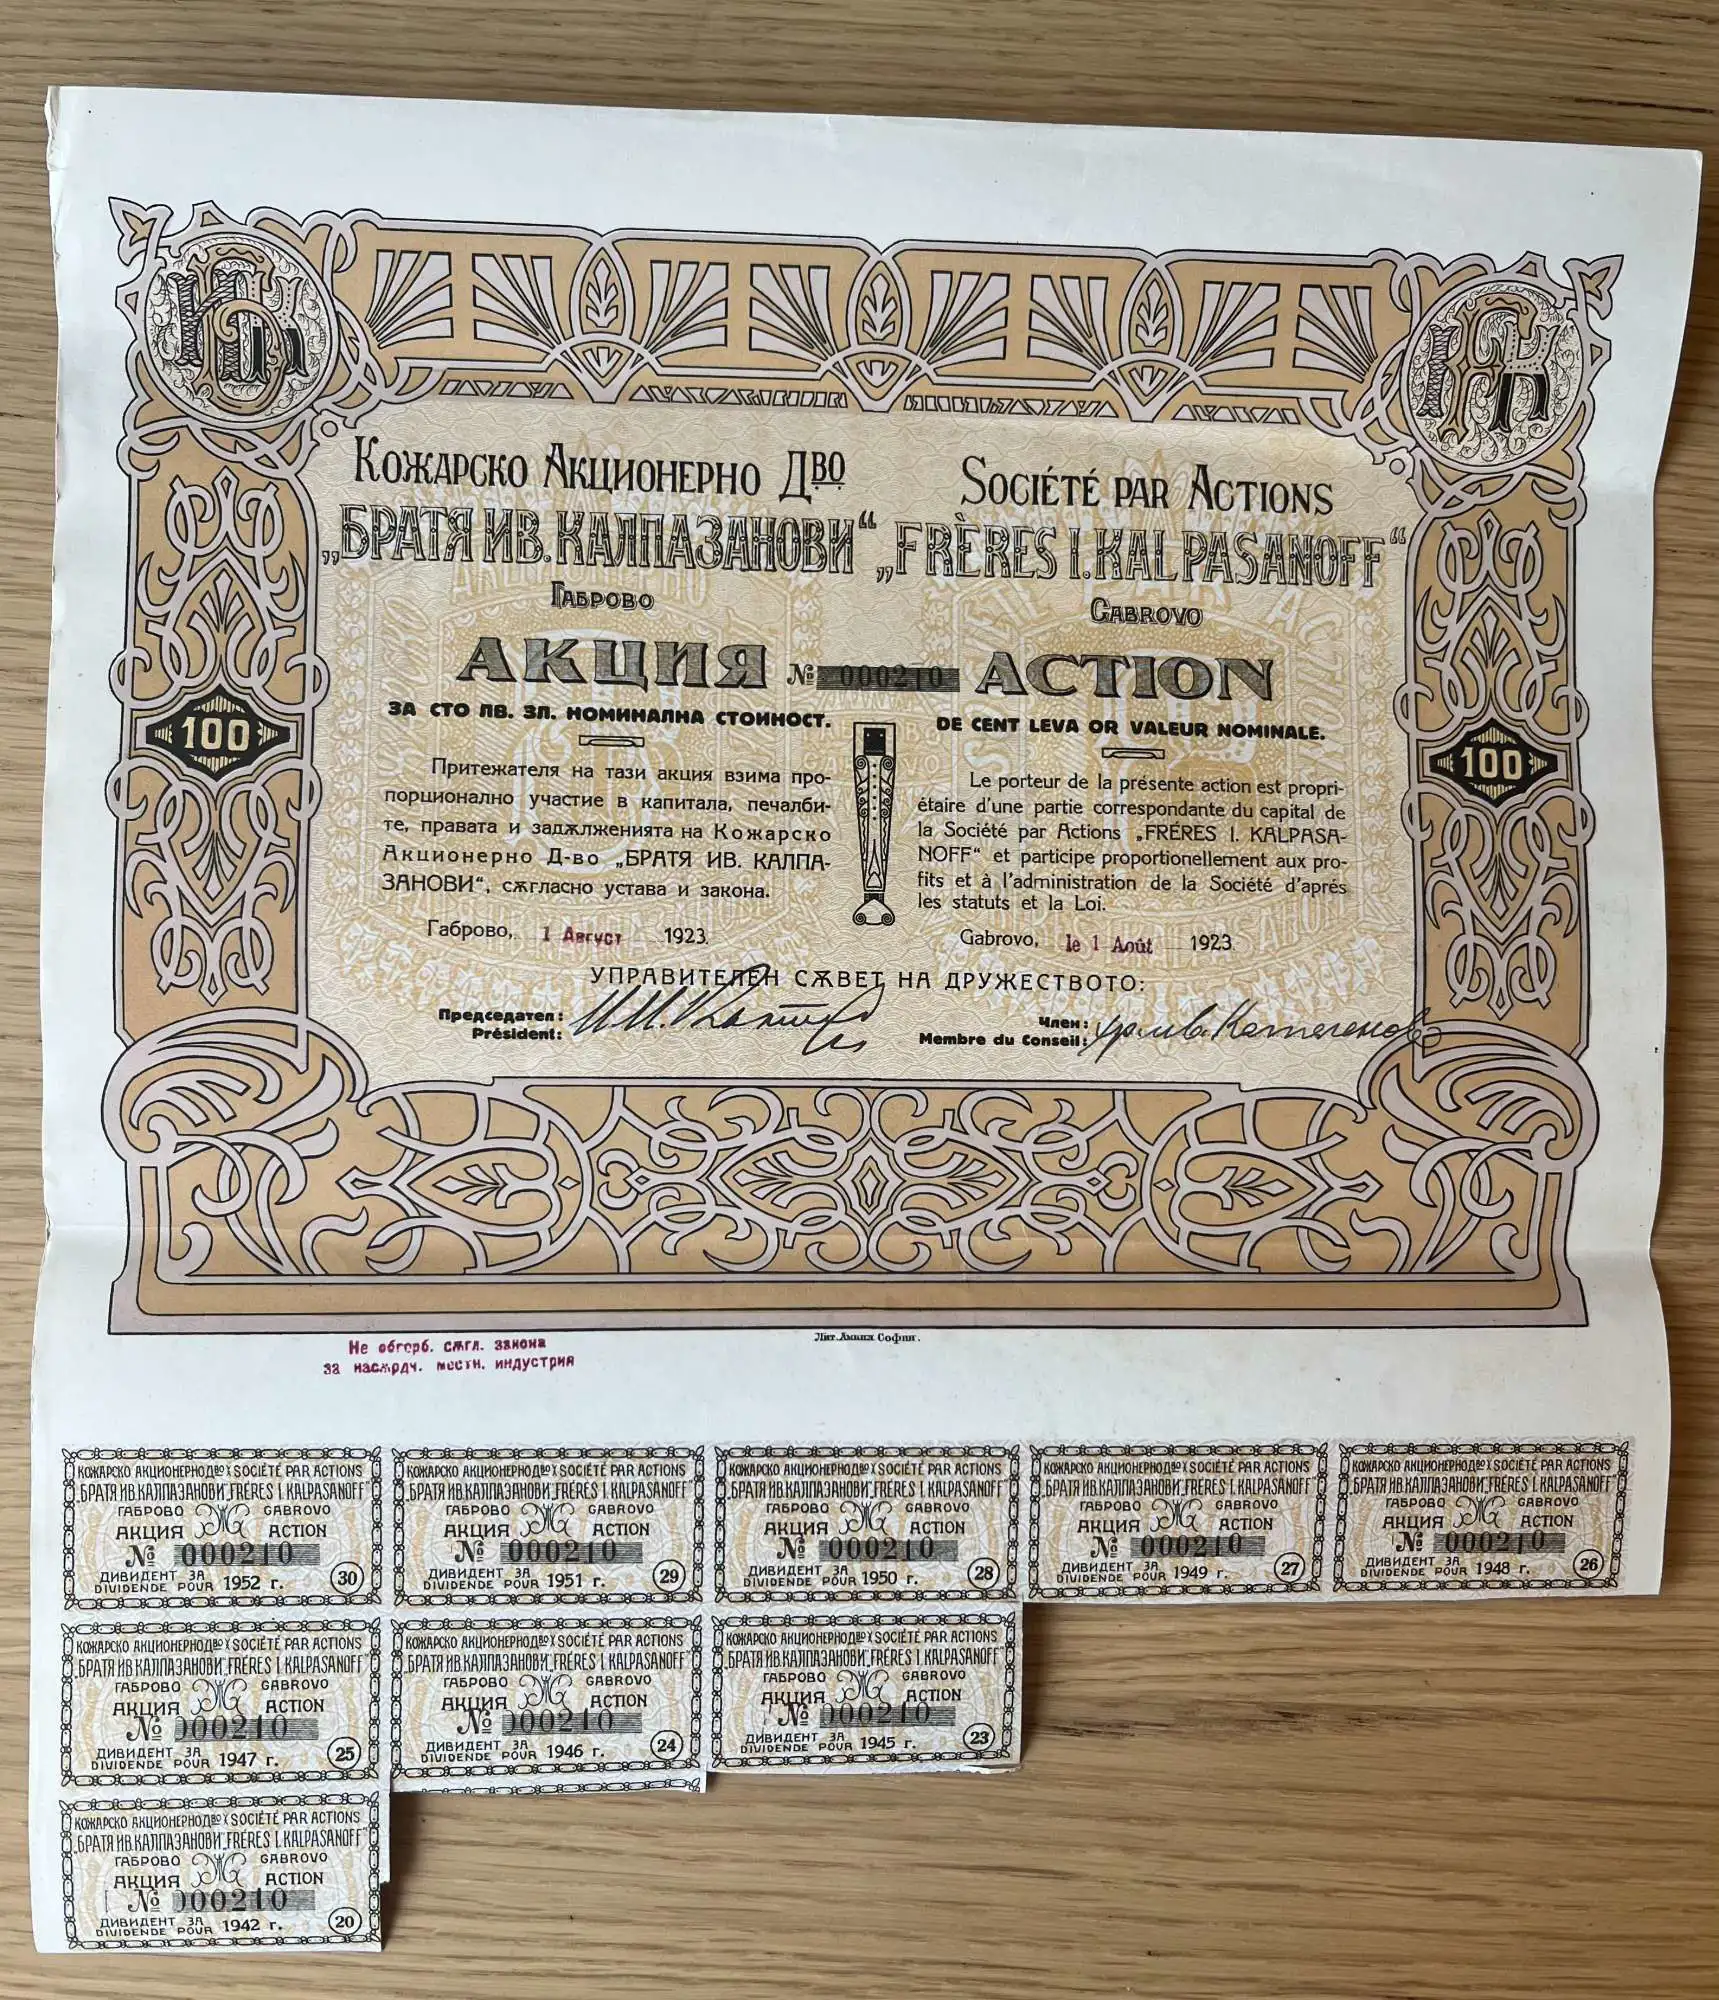 Кожарско Акционерно Дво
„БРАТЯ ИВ. КАЛПАЗАНОВИ“
Габрово
АКЦИЯ
№ 000210
ЗА СТО ЛВ. ЗЛ. НОМИНАЛНА СТОЙНОСТ.
100
Притежателя на тази акция взима про-
порционално участие в капитала, печалби-
те, правата и задѫлженията на Кожарско
Акционерно Д-во „БРАТЯ ИВ. КАЛПА-
ЗАНОВИ“, сѫгласно устава и закона.
Габрово, 1 Август 1923.
Société par Actions
„FRÈRES I. KALPASANOFF“
Gabrovo
ACTION
DE CENT LEVA OR VALEUR NOMINALE.
100
Le porteur de la présente action est propri-
étaire d'une partie correspondante du capital de
la Société par Actions „FRÉRES I. KALPASA-
NOFF“ et participe proportionellement aux pro-
fits et à l'administration de la Société d'aprés
les statuts et la Loi.
Gabrovo, le 1 Août 1923.
УПРАВИТЕЛЕН СѪВЕТ НА ДРУЖЕСТВОТО:
Председател:
Président:
Член:
Membre du Conseil:
Лит. Ампил София.
Не обгерб. сѫгл. закона
за насѫрдч. местн. индустрия
КОЖАРСКО АКЦИОНЕРНО Дво SOCIÉTÉ PAR ACTIONS
„БРАТЯ ИВ. КАЛПАЗАНОВИ„ FRÉRES I. KALPASANOFF“
ГАБРОВО GABROVO
АКЦИЯ ACTION
№ 000210
ДИВИДЕНТ ЗА
DIVIDENDE POUR 1952 г. 30
КОЖАРСКО АКЦИОНЕРНО Дво SOCIÉTÉ PAR ACTIONS
„БРАТЯ ИВ. КАЛПАЗАНОВИ„ FRÉRES I. KALPASANOFF“
ГАБРОВО GABROVO
АКЦИЯ ACTION
№ 000210
ДИВИДЕНТ ЗА
DIVIDENDE POUR 1951 г. 29
КОЖАРСКО АКЦИОНЕРНО Дво SOCIÉTÉ PAR ACTIONS
„БРАТЯ ИВ. КАЛПАЗАНОВИ„ FRÉRES I. KALPASANOFF“
ГАБРОВО GABROVO
АКЦИЯ ACTION
№ 000210
ДИВИДЕНТ ЗА
DIVIDENDE POUR 1950 г. 28
КОЖАРСКО АКЦИОНЕРНО Дво SOCIÉTÉ PAR ACTIONS
„БРАТЯ ИВ. КАЛПАЗАНОВИ„ FRÉRES I. KALPASANOFF“
ГАБРОВО GABROVO
АКЦИЯ ACTION
№ 000210
ДИВИДЕНТ ЗА
DIVIDENDE POUR 1949 г. 27
КОЖАРСКО АКЦИОНЕРНО Дво SOCIÉTÉ PAR ACTIONS
„БРАТЯ ИВ. КАЛПАЗАНОВИ„ FRÉRES I. KALPASANOFF“
ГАБРОВО GABROVO
АКЦИЯ ACTION
№ 000210
ДИВИДЕНТ ЗА
DIVIDENDE POUR 1948 г. 26
КОЖАРСКО АКЦИОНЕРНО Дво SOCIÉTÉ PAR ACTIONS
„БРАТЯ ИВ. КАЛПАЗАНОВИ„ FRÉRES I. KALPASANOFF“
ГАБРОВО GABROVO
АКЦИЯ ACTION
№ 000210
ДИВИДЕНТ ЗА
DIVIDENDE POUR 1947 г. 25
КОЖАРСКО АКЦИОНЕРНО Дво SOCIÉTÉ PAR ACTIONS
„БРАТЯ ИВ. КАЛПАЗАНОВИ„ FRÉRES I. KALPASANOFF“
ГАБРОВО GABROVO
АКЦИЯ ACTION
№ 000210
ДИВИДЕНТ ЗА
DIVIDENDE POUR 1946 г. 24
КОЖАРСКО АКЦИОНЕРНО Дво SOCIÉTÉ PAR ACTIONS
„БРАТЯ ИВ. КАЛПАЗАНОВИ„ FRÉRES I. KALPASANOFF“
ГАБРОВО GABROVO
АКЦИЯ ACTION
№ 000210
ДИВИДЕНТ ЗА
DIVIDENDE POUR 1945 г. 23
КОЖАРСКО АКЦИОНЕРНО Дво SOCIÉTÉ PAR ACTIONS
„БРАТЯ ИВ. КАЛПАЗАНОВИ„ FRÉRES I. KALPASANOFF“
ГАБРОВО GABROVO
АКЦИЯ ACTION
№ 000210
ДИВИДЕНТ ЗА
DIVIDENDE POUR 1942 г. 20